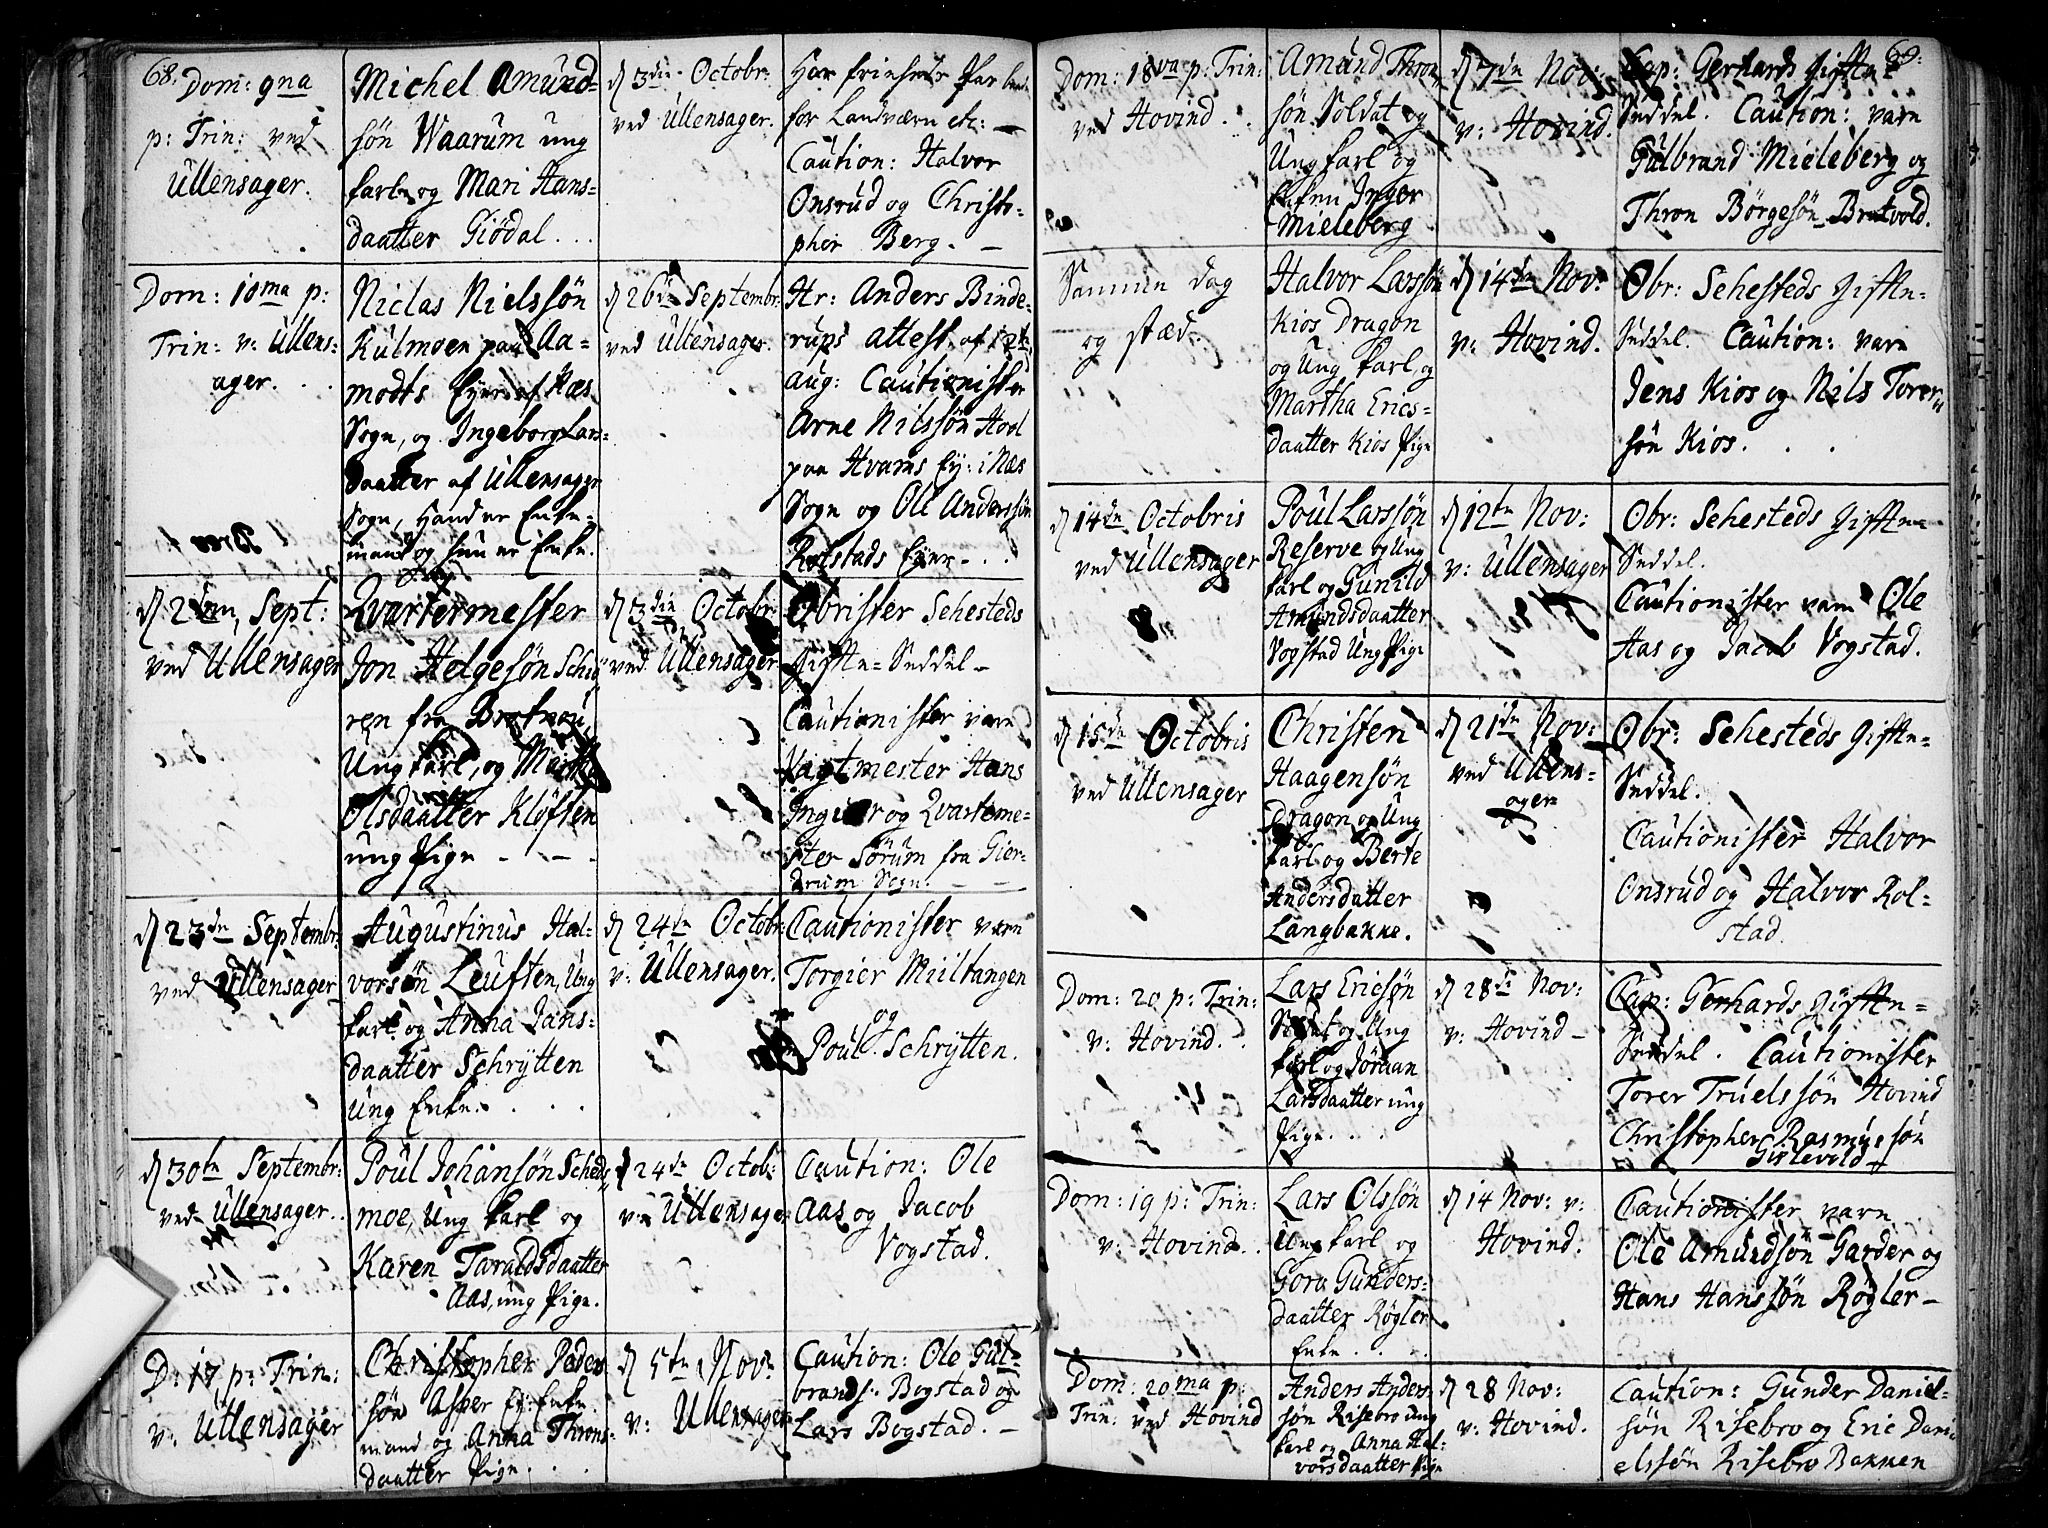 68.
Dom: 9na
p: Trin: ved
Ullensager.
Michel Amund-
søn Waarum ung
karl og Mari Hans-
daatter Giødal. . .
d 3die Octobr:
ved Ullensager.
Har
for Landværn etc: —
Caution: Halvor
Onsrud og Christo-
pher Berg. —
Dom: 10ma p:
Trin: v: Ullens-
ager. . .
Niclas Nielssøn
Kulmoen paa Aa-
modts Eyer af Næs
Sogn, og Ingeborg Lars-
daatter af Ullensager
Sogn, Hand er Enke-
mand og hun er Enke.
d 26de Septembr:
ved Ullensager.
Hr: Anders Binde-
rups attest. af 12te
aug: Cautionister
Arne Nilssøn Hool
paa Hvams Ey: i Næs
Sogn og Ole Anderssøn
Rolstads Eyer. . .
Sept:
ved Ullensager
Qvartermester
Jon Helgesøn Schiø-
ren fra
Ungkarl, og
Olsdaatter Kløften
ung Pige — — .
d 3die Octobr:
ved Ullensager
Obrister Sehesteds
Gifte-Seddel —
Cautionister vare
Vagtmester Hans
og Qvarterme-
ster Sørum fra Gier-
drum Sogn. — —
d 23de Septembr:
ved Ullensager
Augustinus Hal-
vorsøn Leuften, Ung
karl og Anna Jans-
daatter Schrytten
Ung Enke. . . .
d 24de Octobr:
v: Ullensager.
Cautionister vare
Torgier Miiltangen
og
Poul Schrytten.
d 30te Septembr:
ved Ullensager.
Poul Johansøn Sched-
moe, Ung karl og
Karen Taraldsdaatter
Aas, ung Pige.
d 24de Octob:
v: Ullensager
Caution: Ole
Aas og Jacob
Vogstad.
D: 17 p: Trin:
v: Ullensager
Christopher Peder
søn Asper Ey: Enke
mand og Anna Throns-
daatter Pige. . . .
d 5te Nov:
v: Ullensager
Caution: Ole Gul-
brands: Bogstad og
Lars Bogstad. —
69.
Dom: 18va p: Trin:
ved Hovind. . .
Amund Thron
søn Soldat og
Ung karl og
Enken Inger
Mieleberg
d 7de Nov:
v: Hovind.
Cap: Gerhards Gifte-
Seddel. Caution: vare
Gulbrand Mieleberg og
Thron Børgesøn Bratvold.
Sammen dag
og stæd.
Halvor Larssøn
Kios Dragon
og Ung karl, og
Martha Erics-
daatter Kios Pige
d 14de Nov:
v: Hovind.
Obr: Sehesteds Gifte-
Seddel. Caution: vare
Jens Kios og Nils Torer-
søn Kios. . .
d 14de Octobris
ved Ullensager
Poul Larssøn
Reserve og Ung
karl og Gunild
Amundsdaatter
Vogstad Ung Pige
d 12te Nov:
v: Ullensager
Obr: Sehesteds Gifte-
Seddel.
Cautionister vare Ole
Aas og Jacob Vogstad.
d 15de Octobris
ved Ullensager
Christen
Haagensøn
Dragon og Ung
karl og Berte
Andersdatter
Langbakke.
d 21de Nov:
ved Ullens-
ager
Obr: Sehesteds Gifte-
Seddel.
Cautionister Halvor
Onsrud og Halvor Rol-
stad.
Dom: 20 p: Trin:
v: Hovind. .
Lars Ericsøn
Soldat og Ung
karl og Jøraan
Larsdaatter ung
Pige. . . .
d 28de Nov:
v: Hovind —
Cap: Gerhards Gifte-
Seddel. Cautionister
Torer Truelssøn Hovind
Christopher Rasmussøn
Gislevold —
Dom: 19 p: Trin:
v: Hovind. .
Lars Olssøn
Ung karl og
Goro Gunders-
daatter Røgler
Enke. . . .
d 14 Nov: v:
Hovind:
Cautionister vare
Ole Amundsøn Garder og
Hans Hanssøn Røgler —
Dom: 20ma p:
Trin: ved Hovind
Anders Anders
søn Risebro ung
karl og Anna Hal-
vorsdaatter Pige
d 28 Nov:
v: Hovind.
Caution: Gunder Daniel-
søn Risebro og Eric Dani
elssøn Risebro Bakken